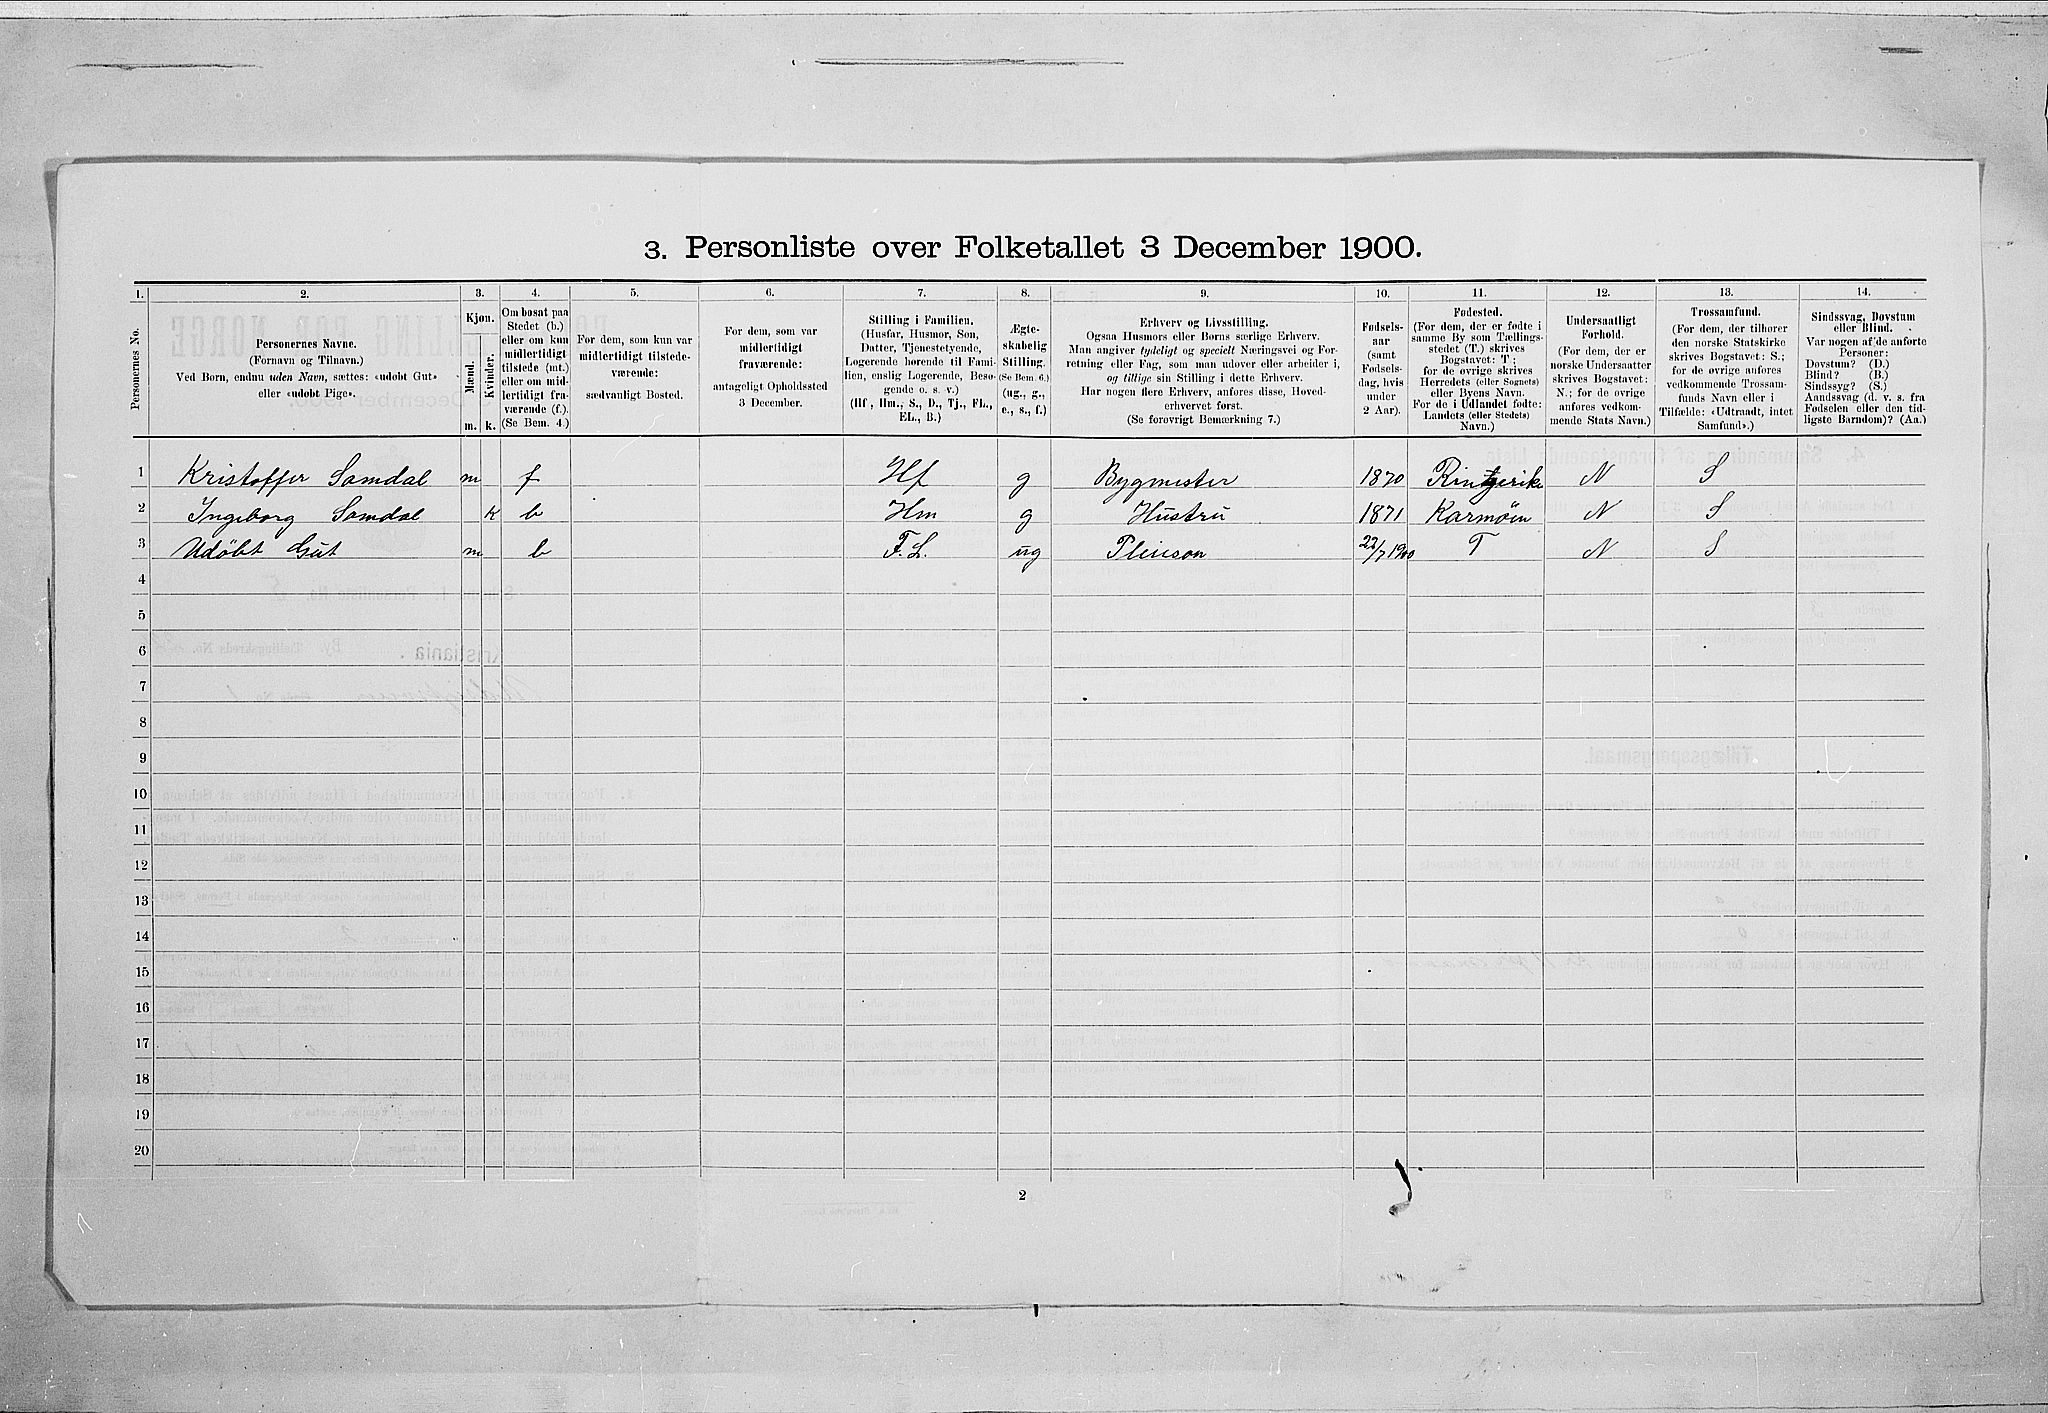 3. Personliste over Folketallet 3 December 1900.
1. 2. 3. 4. 5. 6. 7. 8. 9. 10. 11. 12. 13. 14.
Personernes No.
Personernes Navne.
(Fornavn og Tilnavn.)
Ved Børn, endnu uden Navn, sættes: «udøbt Gut»
eller «udøbt Pige».
Kjøn.
Mænd.
Kvinder.
m. k.
Om bosat paa
Stedet (b.)
eller om kun
midlertidigt
tilstede (mt.)
eller om mid-
lertidigt fra-
værende (f.).
(Se Bem. 4.)
For dem, som kun var
midlertidigt tilstede-
værende:
sædvanligt Bosted.
For dem, som var
midlertidigt
fraværende:
antageligt Opholdssted
3 December.
Stilling i Familien.
(Husfar, Husmor, Søn,
Datter, Tjenestetyende,
Logerende hørende til Fami-
lien, enslig Logerende, Besø-
gende o. s. v.)
(Hf, Hm., S., D., Tj., FL.,
EL., B.)
Ægte-
skabelig
Stilling.
(Se Bem. 6.)
(ug., g.,
e., s., f.)
Erhverv og Livsstilling.
Ogsaa Husmors eller Børns særlige Erhverv.
Man angiver tydeligt og specielt Næringsvei og For-
retning eller Fag, som man udøver eller arbeider i,
og tillige sin Stilling i dette Erhverv.
Har nogen flere Erhverv, anføres disse, Hoved-
erhvervet først.
(Se forøvrigt Bemærkning 7.)
Fødsels-
aar
(samt
Fødsels-
dag, hvis
under
2 Aar).
Fødested.
(For dem, der er fødte i
samme By som Tællings-
stedet (T.) skrives
Bogstavet: T;
for de øvrige skrives
Herredets (eller Sognets)
eller Byens Navn.
For de i Udlandet fødte:
Landets (eller Stedets)
Navn.)
Undersaatligt
Forhold.
(For dem, der er
norske Undersaatter
skrives Bogstavet:
N.; for de øvrige
anføres vedkom-
mende Stats Navn.)
Trossamfund.
(For dem, der tilhører
den norske Statskirke
skrives Bogstavet: S.;
for de øvrige anføres
vedkommende Trossam-
funds Navn eller i
Tilfælde: «Udtraadt, intet
Samfund».)
Sindssvag, Døvstum
eller Blind.
Var nogen af de anførte
Personer:
Døvstum? (D.)
Blind? (B.)
Sindssyg? (S.)
Aandssvag (d. v. s. fra
Fødselen eller den tid-
ligste Barndom)? (Aa.)
1 Kristoffer Samdal m f Hf g Bygmester 1870 Ringerike N S
2 Ingeborg Samdal k b Hm g Hustru 1871 Karmøen N S
3 Udøbt Gut m b F.L. ug Pleiesøn 22/7 1900 T N S
4
5
6
7
8
9
10
11
12
13
14
15
16
17
18
19
20
2